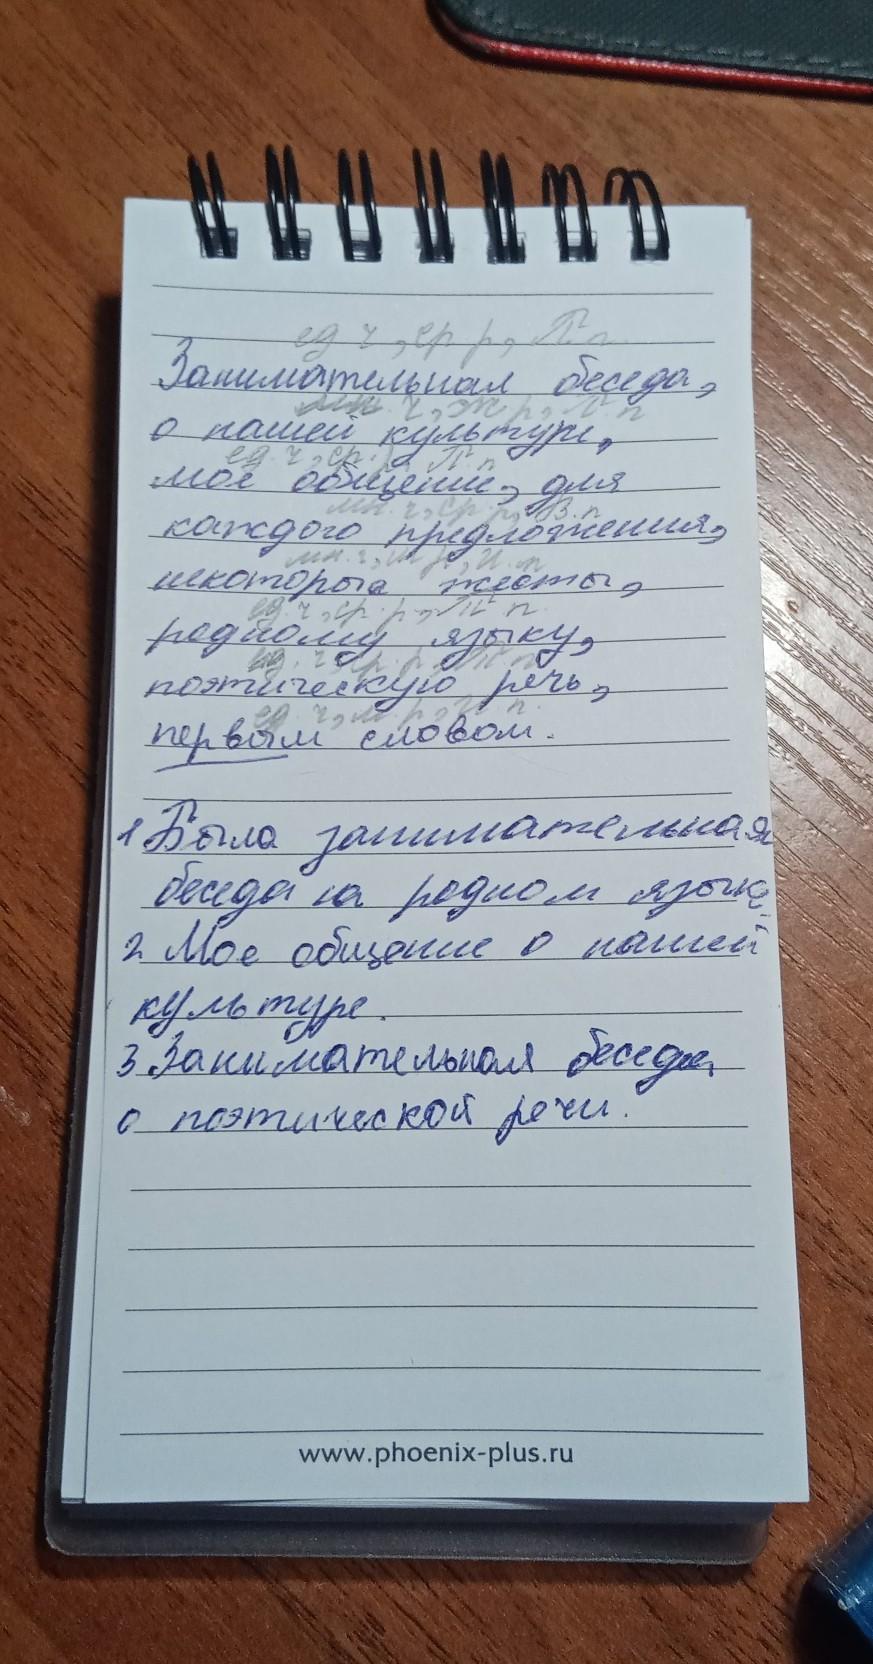 ед ч, ср р, П.п.
Занимательная беседа,
мн. ч, ж р, П. п
о нашей культуре,
ед. ч, ср. р, П. п
моё общение, для
мн. ч, ср. р, В. п
каждого предложения,
мн. ч, И. п
некоторые жесты,
ед. ч, ср. р, п.
родному языку,
ед. ч, ср. р, п
поэтическую речь,
ед. ч, м. р, п.
первым словом.
1 Была занимательная
беседа на родном языке.
2. Мое общение о нашей
культуре.
3. Занимательная беседа
о поэтической речи.
www.phoenix-plus.ru